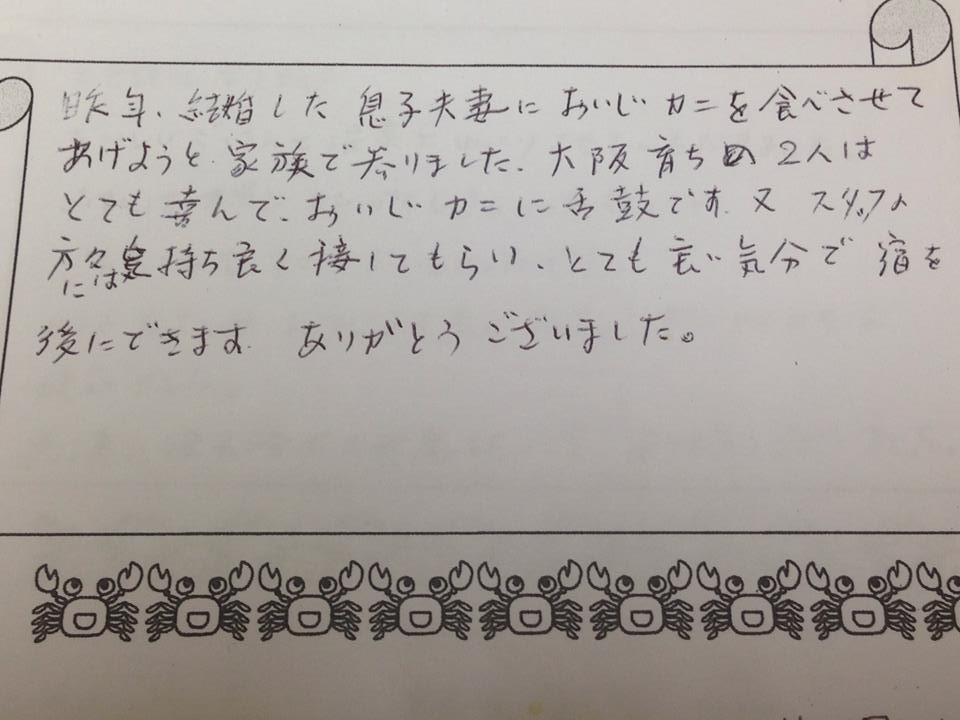 昨年、結婚した 息子夫妻に おいしい カニを食べさせて
あげようと、家族で参りました。大阪育ちの2人は
とても喜んで、おいしいカニに舌鼓です。又 スタッフの
方々には気持ち良く接してもらい、とても良い気分で 宿を
後にできます。 ありがとうございました。